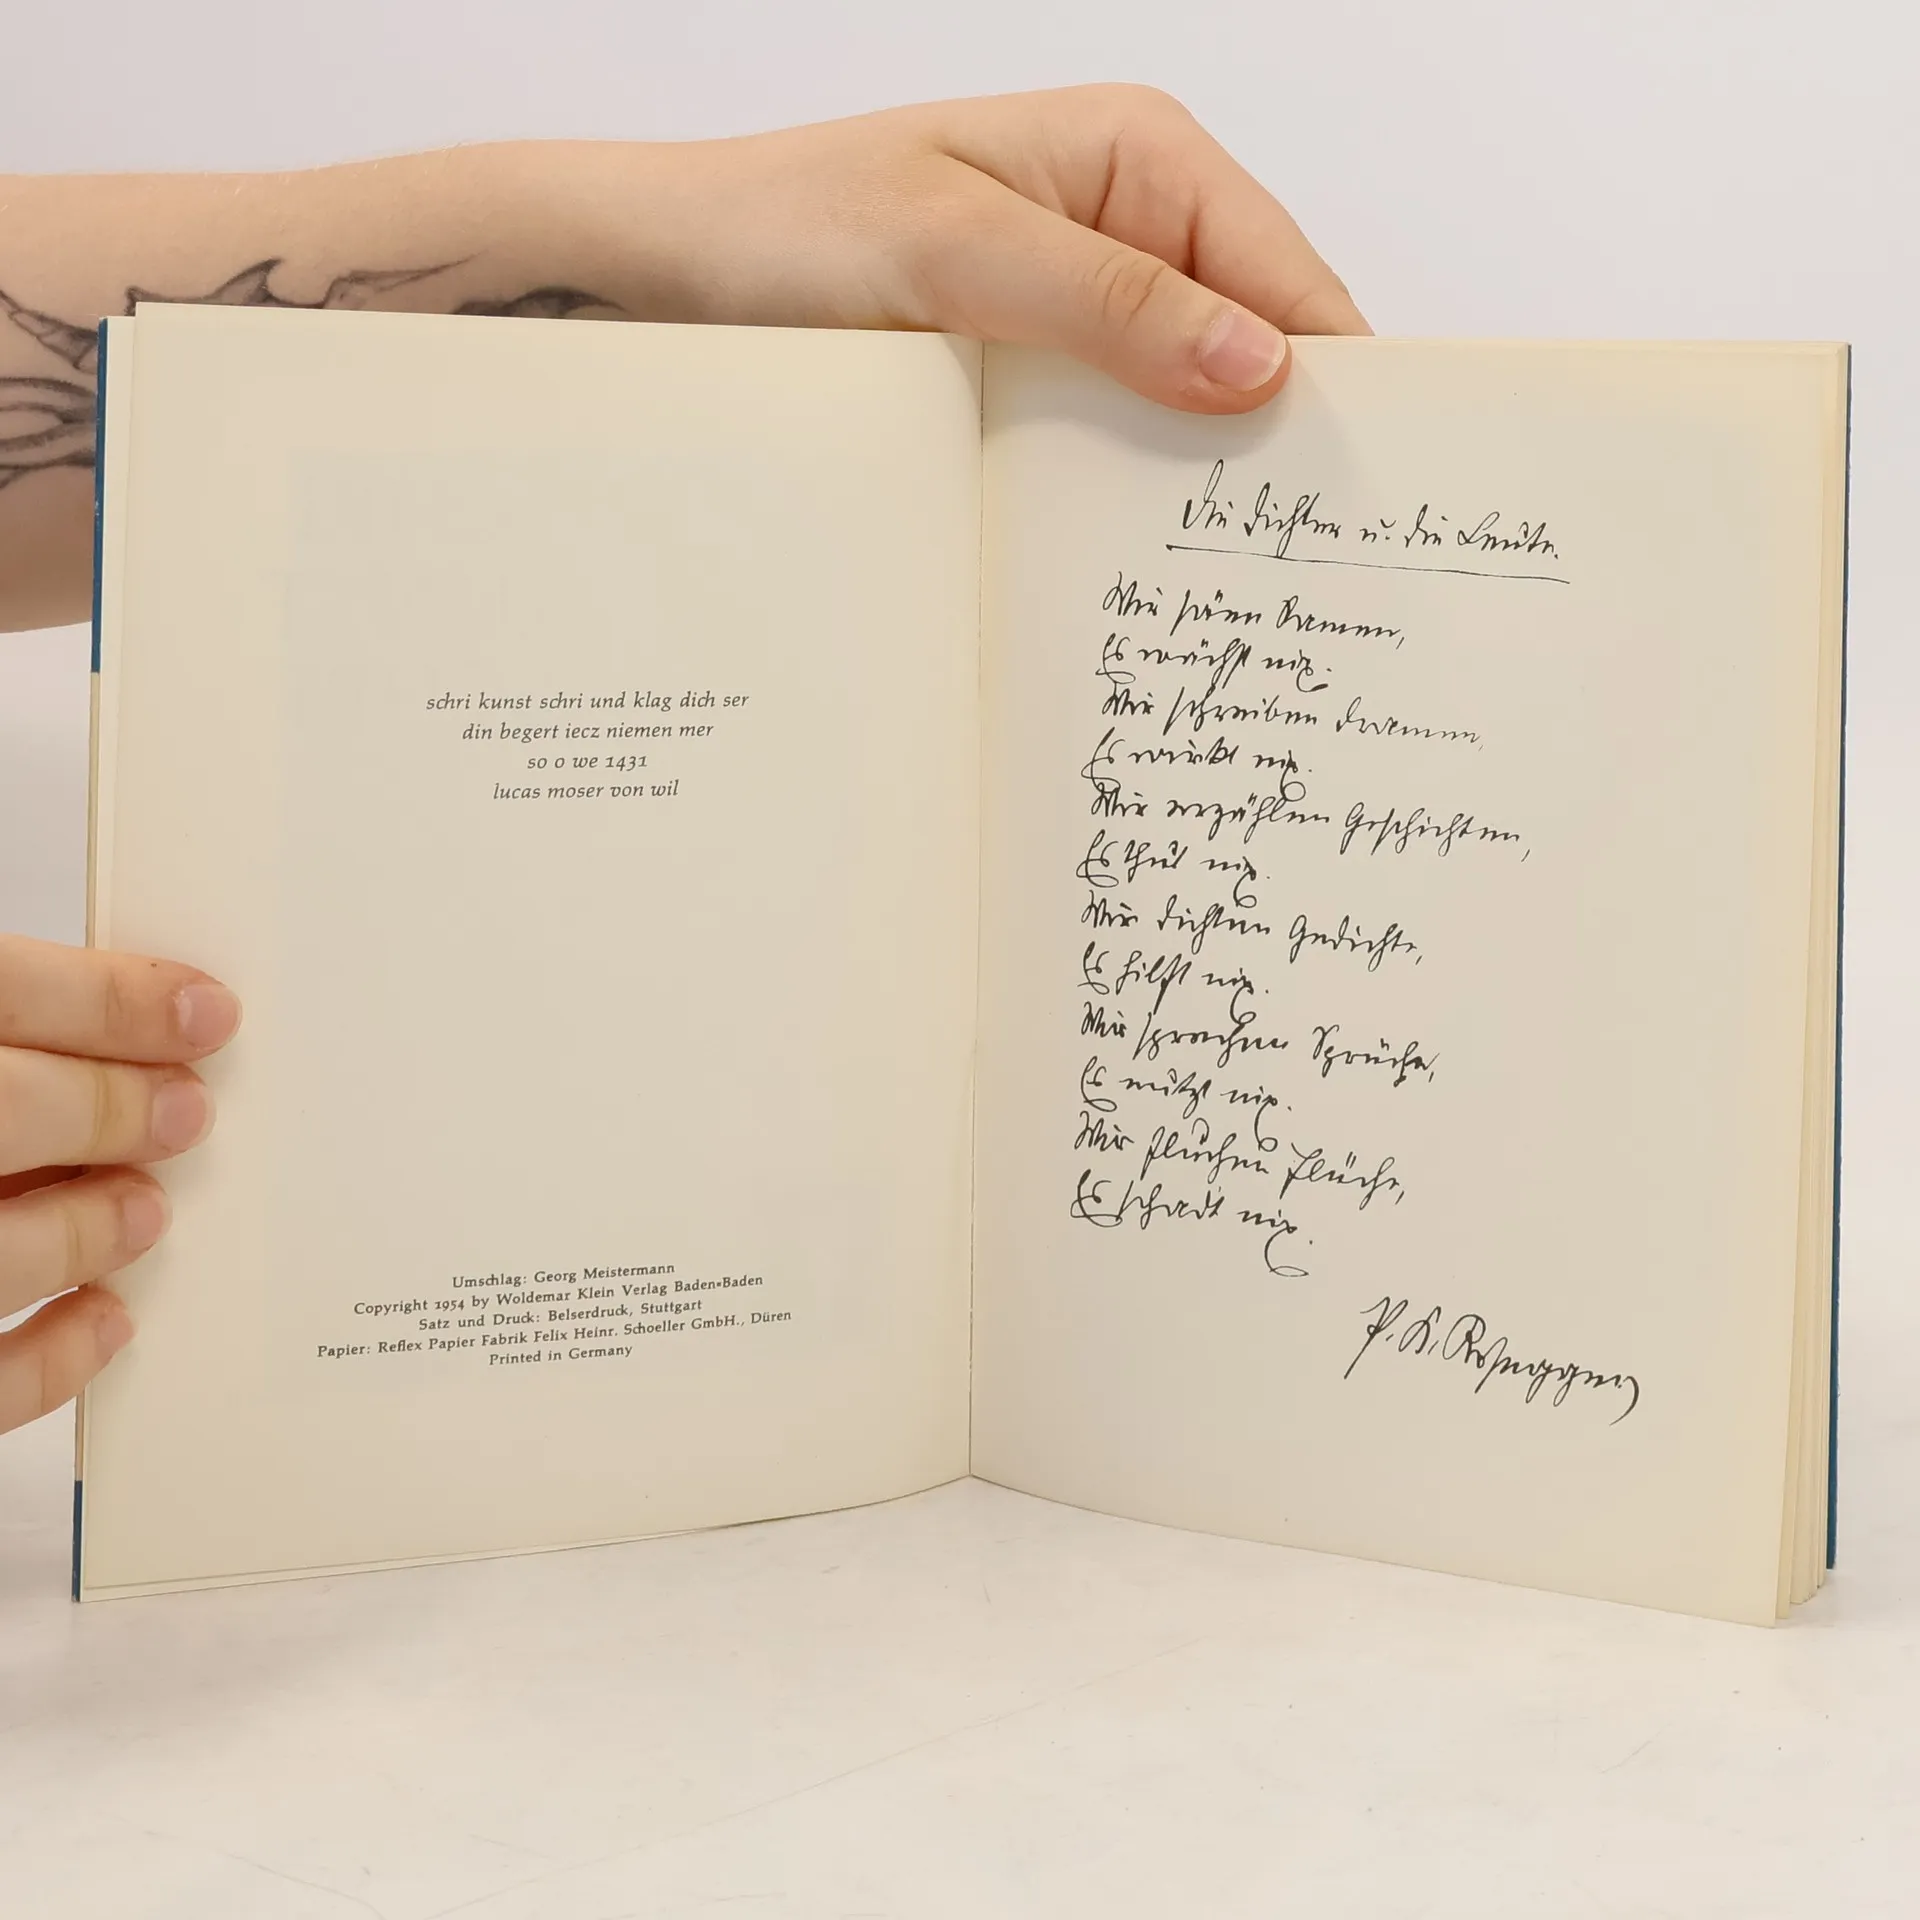 schri kunst schri und klag dich ser
din begert iecz niemen mer
so o we 1431
lucas moser von wil
Umschlag: Georg Meistermann
Copyright 1954 by Woldemar Klein Verlag Baden-Baden
Satz und Druck: Belserdruck, Stuttgart
Papier: Reflex Papier Fabrik Felix Heinr. Schoeller GmbH., Düren
Printed in Germany
Die Dichter u. die Leute.
Wir säen Samen,
Es wächst nix.
Wir schreiben Dramen,
Es wirkt nix.
Wir erzählen Geschichten,
Es thut nix.
Wir dichten Gedichte,
Es hilft nix.
Wir sprechen Sprüche,
Es nützt nix.
Wir fluchen Flüche,
Es schadt nix.
P. K. Rosegger